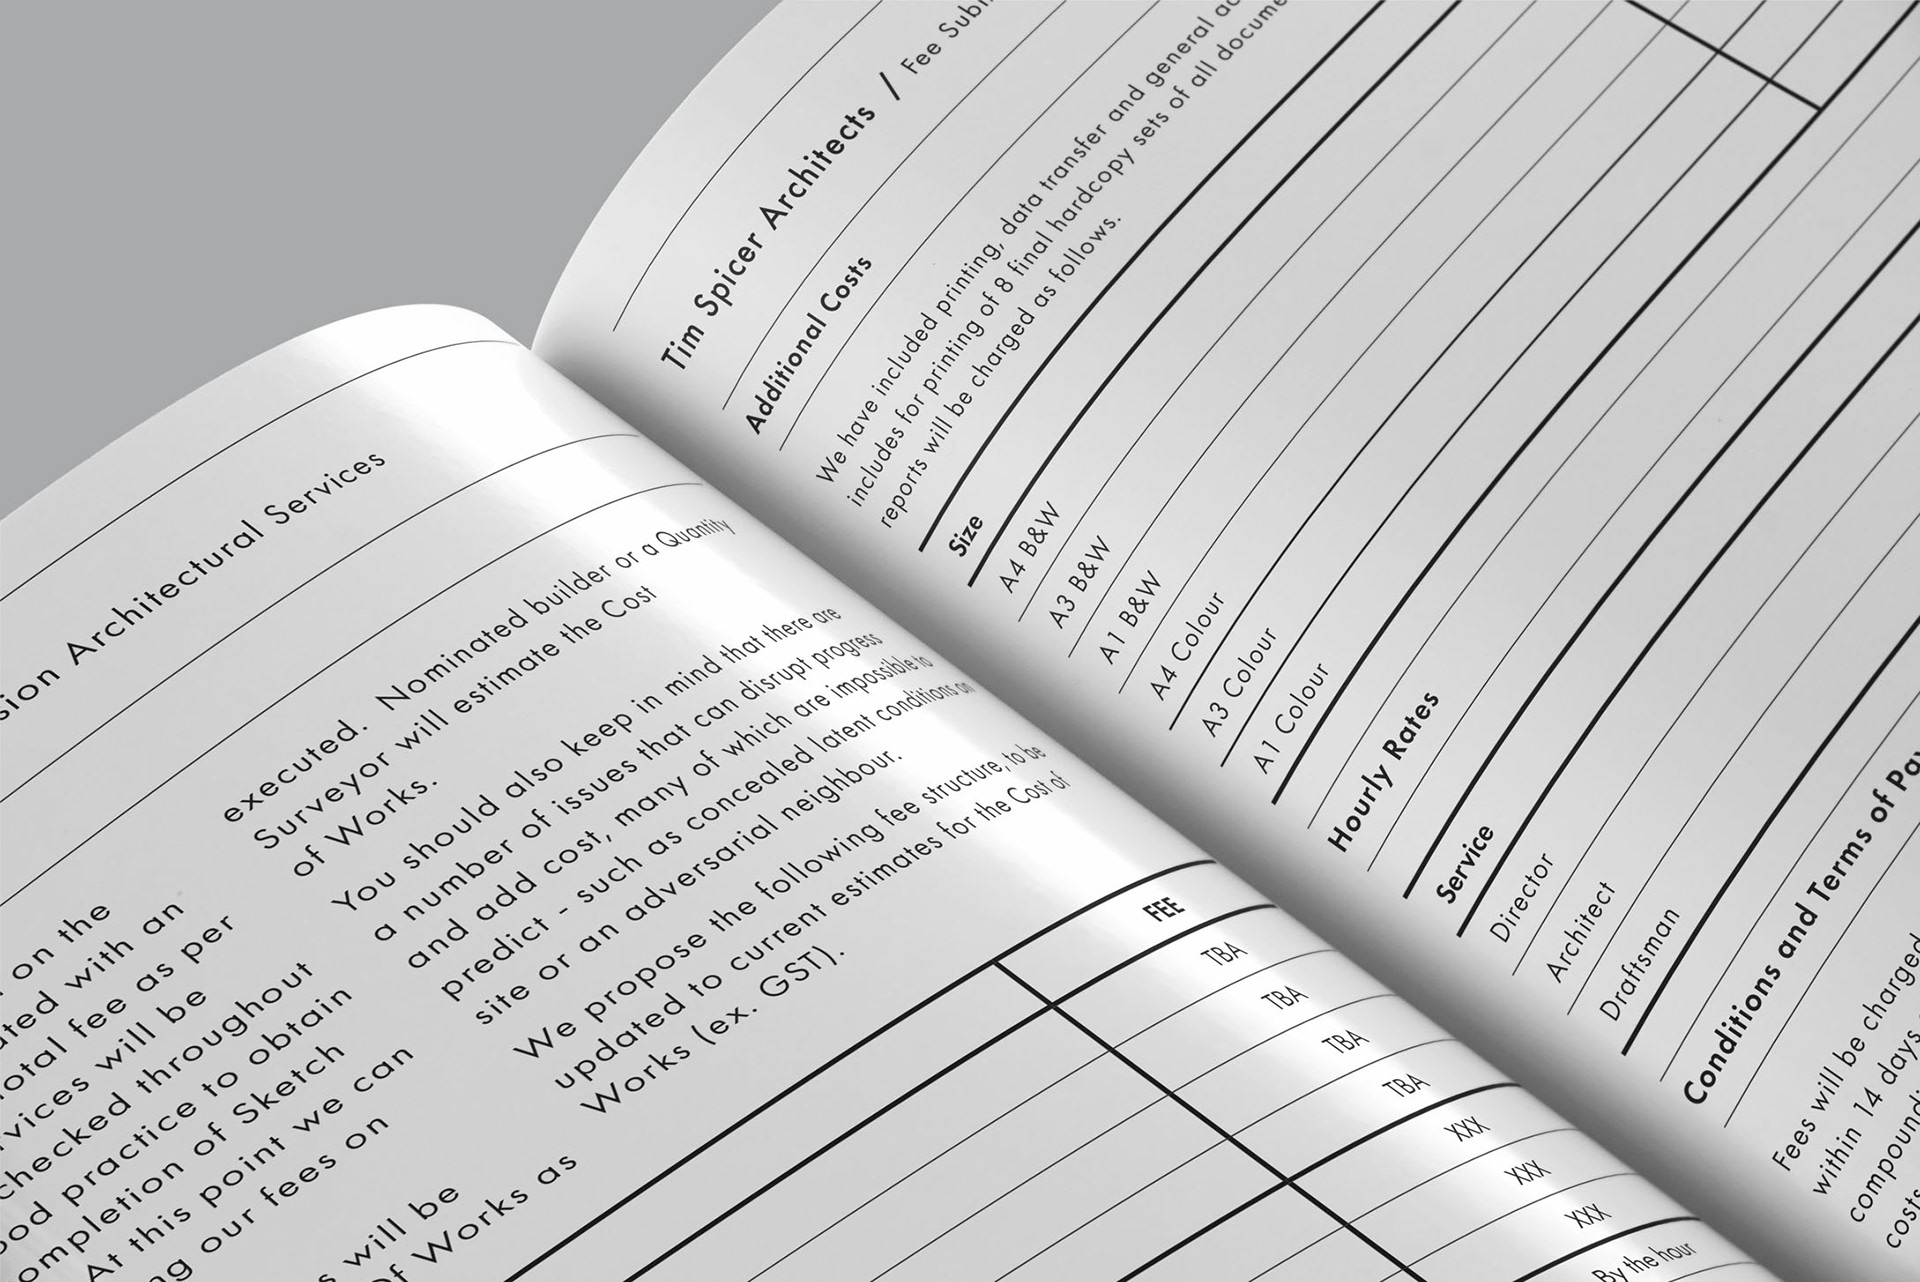 Architectural Services
on the
with an
total fee as per
will be
checked throughout
practice to obtain
of Sketch
At this point we can
our fees on
will be
Of Works as
executed. Nominated builder or a Quantity
Surveyor will estimate the Cost
of Works.
You should also keep in mind that there are
a number of issues that can disrupt progress
and add cost, many of which are impossible to
predict - such as concealed latent conditions on
site or an adversarial neighbour.
We propose the following fee structure, to be
updated to current estimates for the Cost of
Works (ex. GST).
FEE
TBA
TBA
TBA
TBA
XXX
XXX
XXX
By the hour
Tim Spicer Architects / Fee
Additional Costs
We have included printing, data transfer and general
includes for printing of 8 final hardcopy sets of all
reports will be charged as follows.
Size
A4 B&W
A3 B&W
A1 B&W
A4 Colour
A3 Colour
A1 Colour
Hourly Rates
Service
Director
Architect
Draftsman
Conditions and Terms of
Fees will be charged
within 14 days
costs